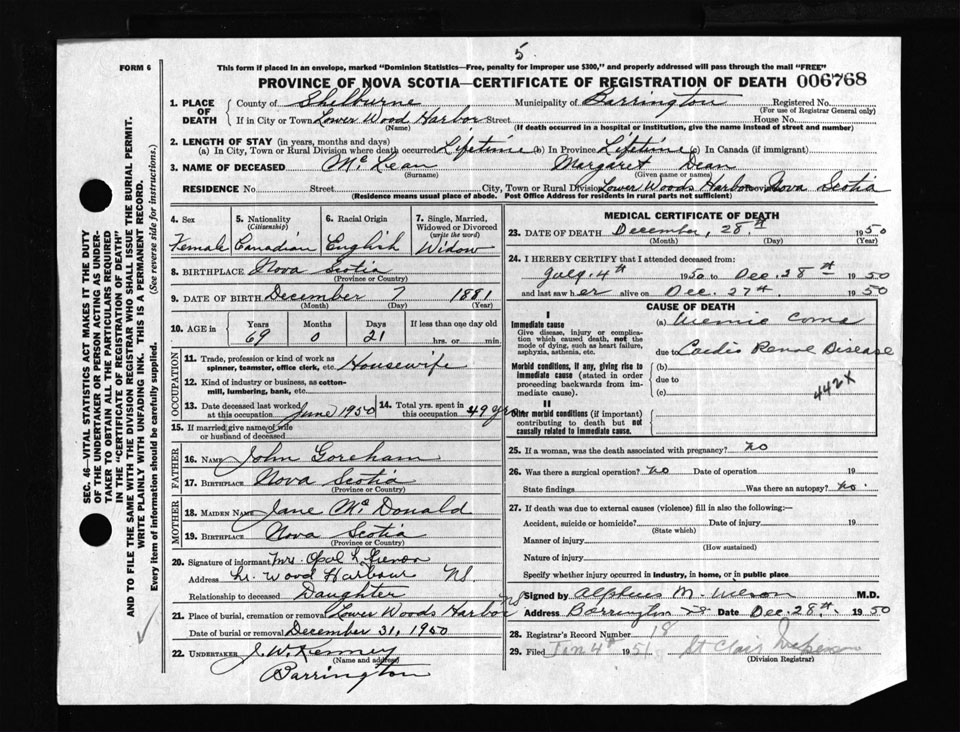 5
FORM 6
This form if placed in an envelope, marked "Dominion Statistics—Free, penalty for improper use $300," and properly addressed will pass through the mail "FREE"
PROVINCE OF NOVA SCOTIA—CERTIFICATE OF REGISTRATION OF DEATH 006768
1. PLACE OF DEATH County of Shelburne Municipality of Barrington Registered No.
(For use of Registrar General only)
If in City or Town Lower Wood Harbor Street House No.
(Name) (If death occurred in a hospital or institution, give the name instead of street and number)
2. LENGTH OF STAY (in years, months and days)
(a) In City, Town or Rural Division where death occurred Lifetime (b) In Province Lifetime (c) In Canada (if immigrant)
3. NAME OF DECEASED McLean Margaret Dean
(Surname) (Given name or names)
RESIDENCE No. Street City, Town or Rural Division Lower Woods Harbor Nova Scotia
(Residence means usual place of abode. Post Office Address for residents in rural parts not sufficient)
4. Sex 5. Nationality (Citizenship) 6. Racial Origin 7. Single, Married, Widowed or Divorced (write the word)
Female Canadian English Widow
8. BIRTHPLACE Nova Scotia
(Province or Country)
9. DATE OF BIRTH December 7 1881
(Month) (Day) (Year)
10. AGE in Years Months Days If less than one day old
69 0 21 hrs. or min.
OCCUPATION
11. Trade, profession or kind of work as spinner, teamster, office clerk, etc. Housewife
12. Kind of industry or business, as cotton-mill, lumbering, bank, etc.
13. Date deceased last worked at this occupation June 1950 14. Total yrs. spent in this occupation 49 yrs
15. If married give name of wife or husband of deceased
FATHER
16. NAME John Goreham
17. BIRTHPLACE Nova Scotia
(Province or Country)
MOTHER
18. MAIDEN NAME Jane McDonald
19. BIRTHPLACE Nova Scotia
(Province or Country)
20. Signature of informant Mrs. Opal L.
Address Lr. Wood Harbour NS.
Relationship to deceased Daughter
21. Place of burial, cremation or removal Lower Woods Harbor NS
Date of burial or removal December 31, 1950
22. UNDERTAKER J. W. Kenney
(Name and address)
Barrington
MEDICAL CERTIFICATE OF DEATH
23. DATE OF DEATH December, 28th 1950
(Month) (Day) (Year)
24. I HEREBY CERTIFY that I attended deceased from:
July 4th 1950 to Dec. 28th 1950
and last saw her alive on Dec. 27th 1950
CAUSE OF DEATH
I
Immediate cause (a) Uremic Coma
Give disease, injury or complication which caused death, not the mode of dying, such as heart failure, asphyxia, asthenia, etc.
due to Cardio Renal Disease
Morbid conditions, if any, giving rise to immediate cause (stated in order proceeding backwards from immediate cause).
(b)
due to
(c)
442X
II
Other morbid conditions (if important) contributing to death but not causally related to immediate cause.
25. If a woman, was the death associated with pregnancy? no
26. Was there a surgical operation? no Date of operation 19
State findings Was there an autopsy? no.
27. If death was due to external causes (violence) fill in also the following:—
Accident, suicide or homicide? Date of injury 19
(State which)
Manner of injury
(How sustained)
Nature of injury
Specify whether injury occurred in industry, in home, or in public place
Signed by Alpheus M. Wilson M.D.
Address Barrington Date Dec. 28th 1950
28. Registrar's Record Number 18
29. Filed Jan 4th 1951 St Clair
(Division Registrar)
SEC. 46—VITAL STATISTICS ACT MAKES IT THE DUTY
OF THE UNDERTAKER OR PERSON ACTING AS UNDER-
TAKER TO OBTAIN ALL THE PARTICULARS REQUIRED
IN THE "CERTIFICATE OF REGISTRATION OF DEATH"
AND TO FILE THE SAME WITH THE DIVISION REGISTRAR WHO SHALL ISSUE THE BURIAL PERMIT.
WRITE PLAINLY WITH UNFADING INK. THIS IS A PERMANENT RECORD.
Every item of information should be carefully supplied. (See reverse side for instructions.)